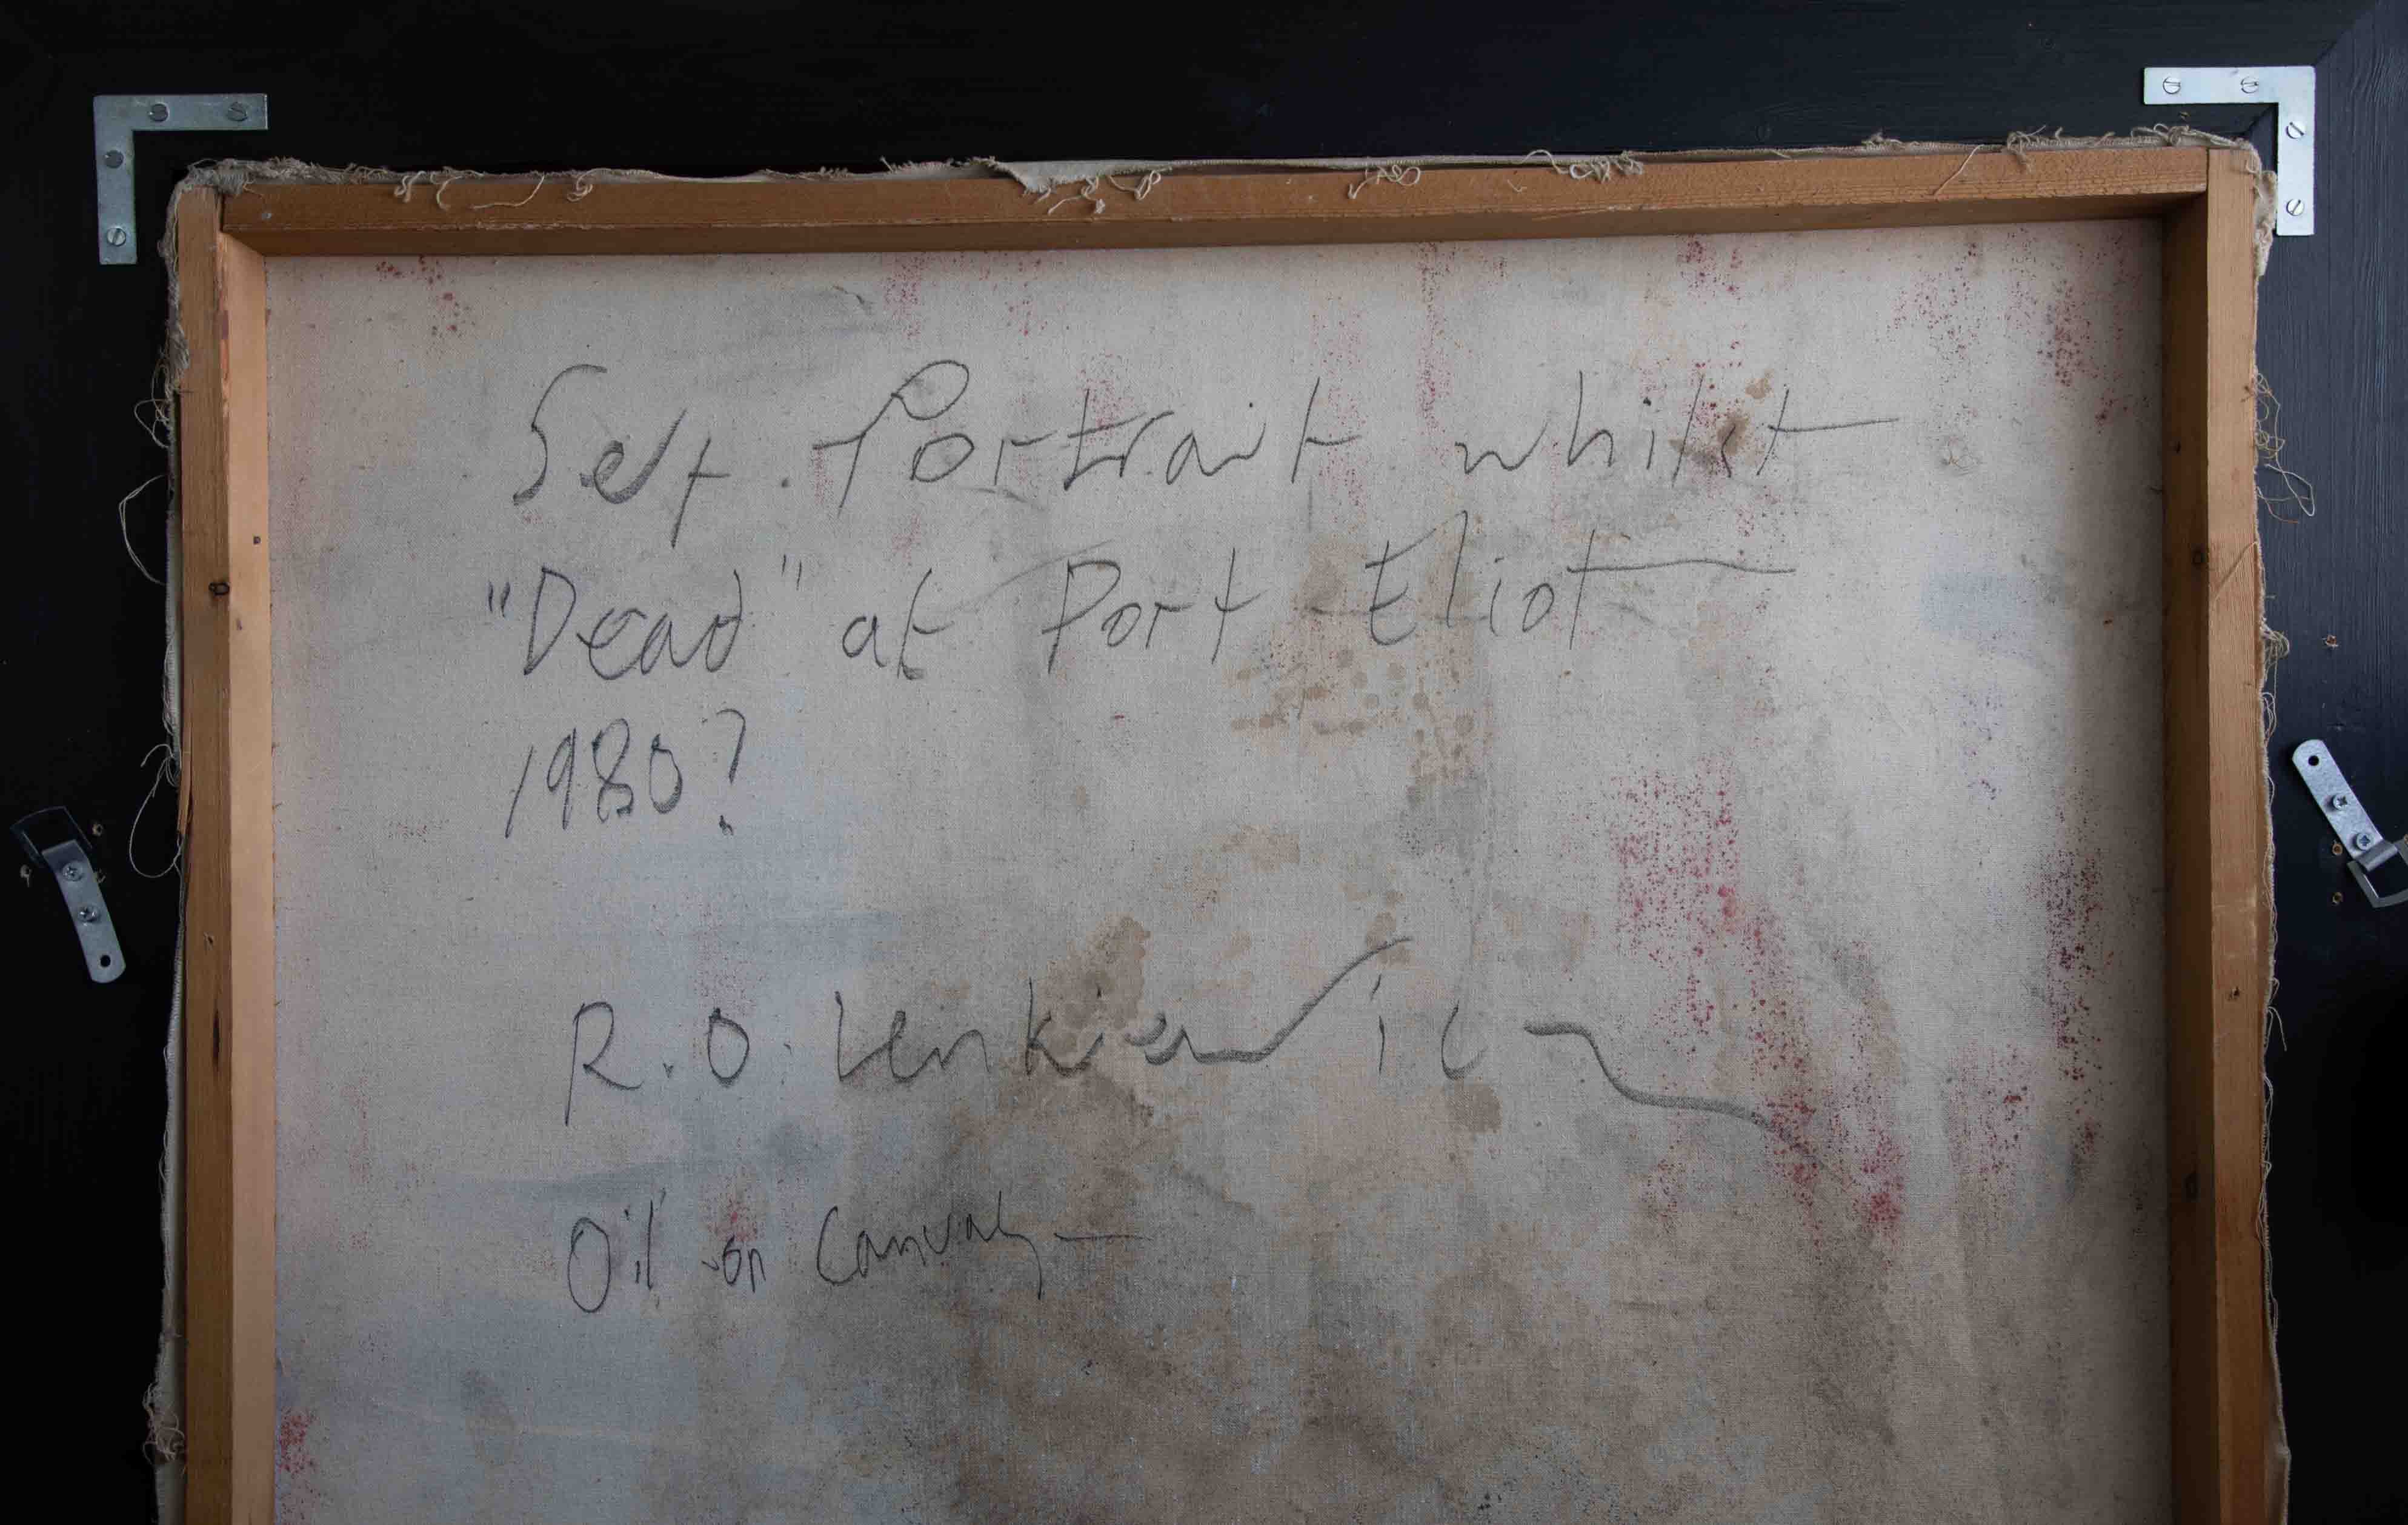 Self. Portrait whilst
"Dead" at Port Eliot
1980?
R.O. Lenkiewicz
Oil on Canvas